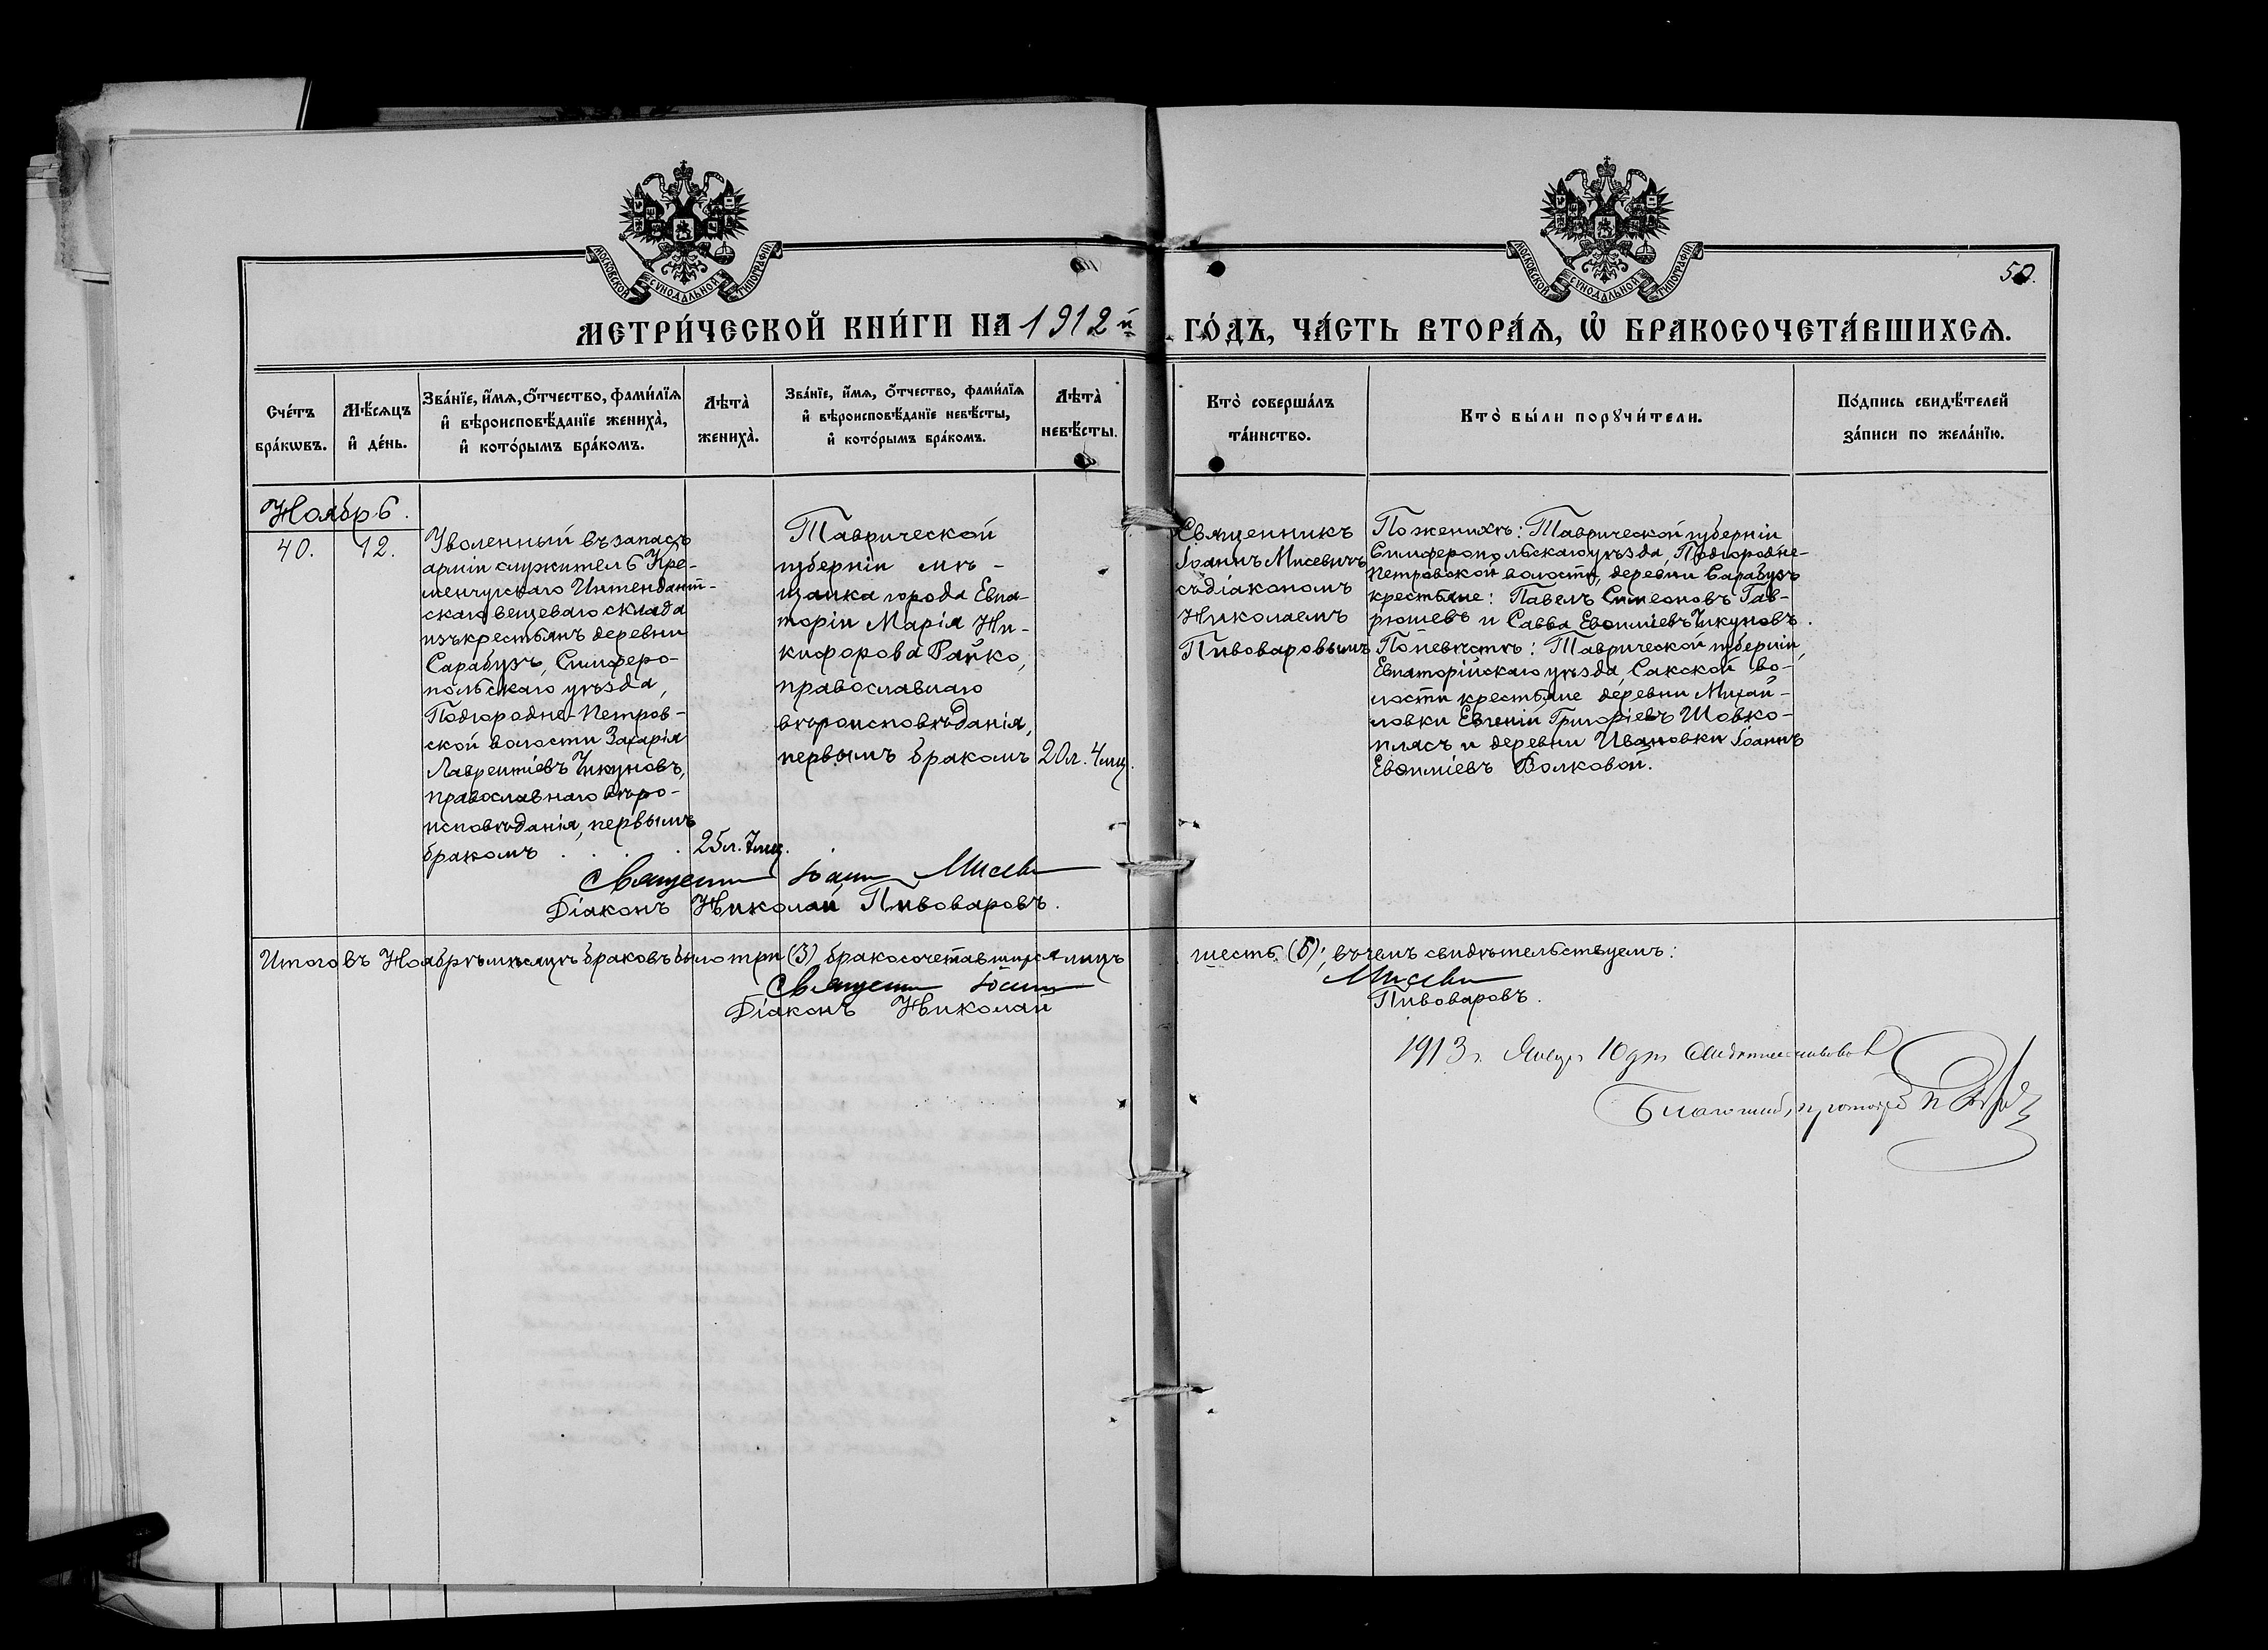 МОСКОВСКОЙ СѴНОДАЛЬНОЙ ТИПОГРАФІИ
МОСКОВСКОЙ СѴНОДАЛЬНОЙ ТИПОГРАФІИ
50.
МЕТРИ́ЧЕСКОЙ КНИ́ГИ НА 1912 й ГО́ДЪ, ЧА́СТЬ ВТОРА́Я, Ѡ҆ БРАКОСОЧЕТА́ВШИХСѦ.
Сче́тъ бра́кѡвъ.
Мѣ́сяцъ и҆ де́нь.
Зва́нїе, и҆́мѧ, ѻ҆́тчество, фами́лїѧ
и҆ вѣроисповѣ́данїе жениха̀,
и҆ кото́рымъ бра́комъ.
Лѣта̀ жениха̀.
Зва́нїе, и҆́мѧ, ѻ҆́тчество, фами́лїѧ
и҆ вѣроисповѣ́данїе невѣ́сты,
и҆ кото́рымъ бра́комъ.
Лѣта̀ невѣ́сты.
Кто̀ соверша́лъ
та́инство.
Кто̀ бы́ли порꙋчи́тели.
По́дпись свидѣ́телей
за́писи по жела́нїю.
Ноябрь.
40. 12.
Уволенный въ запасъ
арміи служитель Кре-
менчугскаго Интендант-
скаго вещеваго склада
изъ крестьянъ деревни
Сарабузъ, Симферо-
польскаго уѣзда,
Подгородне-Петров-
ской волости Захарія
Лаврентіевъ Чикуновъ,
православнаго вѣро-
исповѣданія, первымъ
бракомъ . . . . 25 л. 7 мц.
Таврической
губерніи мѣ-
щанка города Евпа-
торіи Марія Ни-
кифорова Райко,
православнаго
вѣроисповѣданія,
первымъ бракомъ 20 л. 4 мц.
Священникъ
Іоаннъ Мисевичъ
съ діакономъ
Николаемъ
Пивоваровымъ
По женихѣ: Таврической губерніи
Симферопольскаго уѣзда, Подгородне-
Петровской волости, деревни Сарабузъ
крестьяне: Павелъ Симеоновъ Гав-
рюшевъ и Савва Евѳиміевъ Чикуновъ.
По невѣстѣ: Таврической губерніи,
Евпаторійскаго уѣзда, Сакской во-
лости крестьяне деревни Михай-
ловки Евгеній Григоріевъ Шовко-
плясъ и деревни Ивановки Іоаннъ
Евѳиміевъ Волковой.
Священникъ Іоаннъ Мисевичъ
Діаконъ Николай Пивоваровъ.
Итого въ Ноябрѣ мѣсяцѣ браковъ было три (3) бракосочетавшихся лицъ шесть (6); въ чемъ свидѣтельствуемъ:
Священникъ Іоаннъ Мисевичъ
Діаконъ Николай Пивоваровъ.
1913 г. Январ 10 дня
Благочин, протоіер